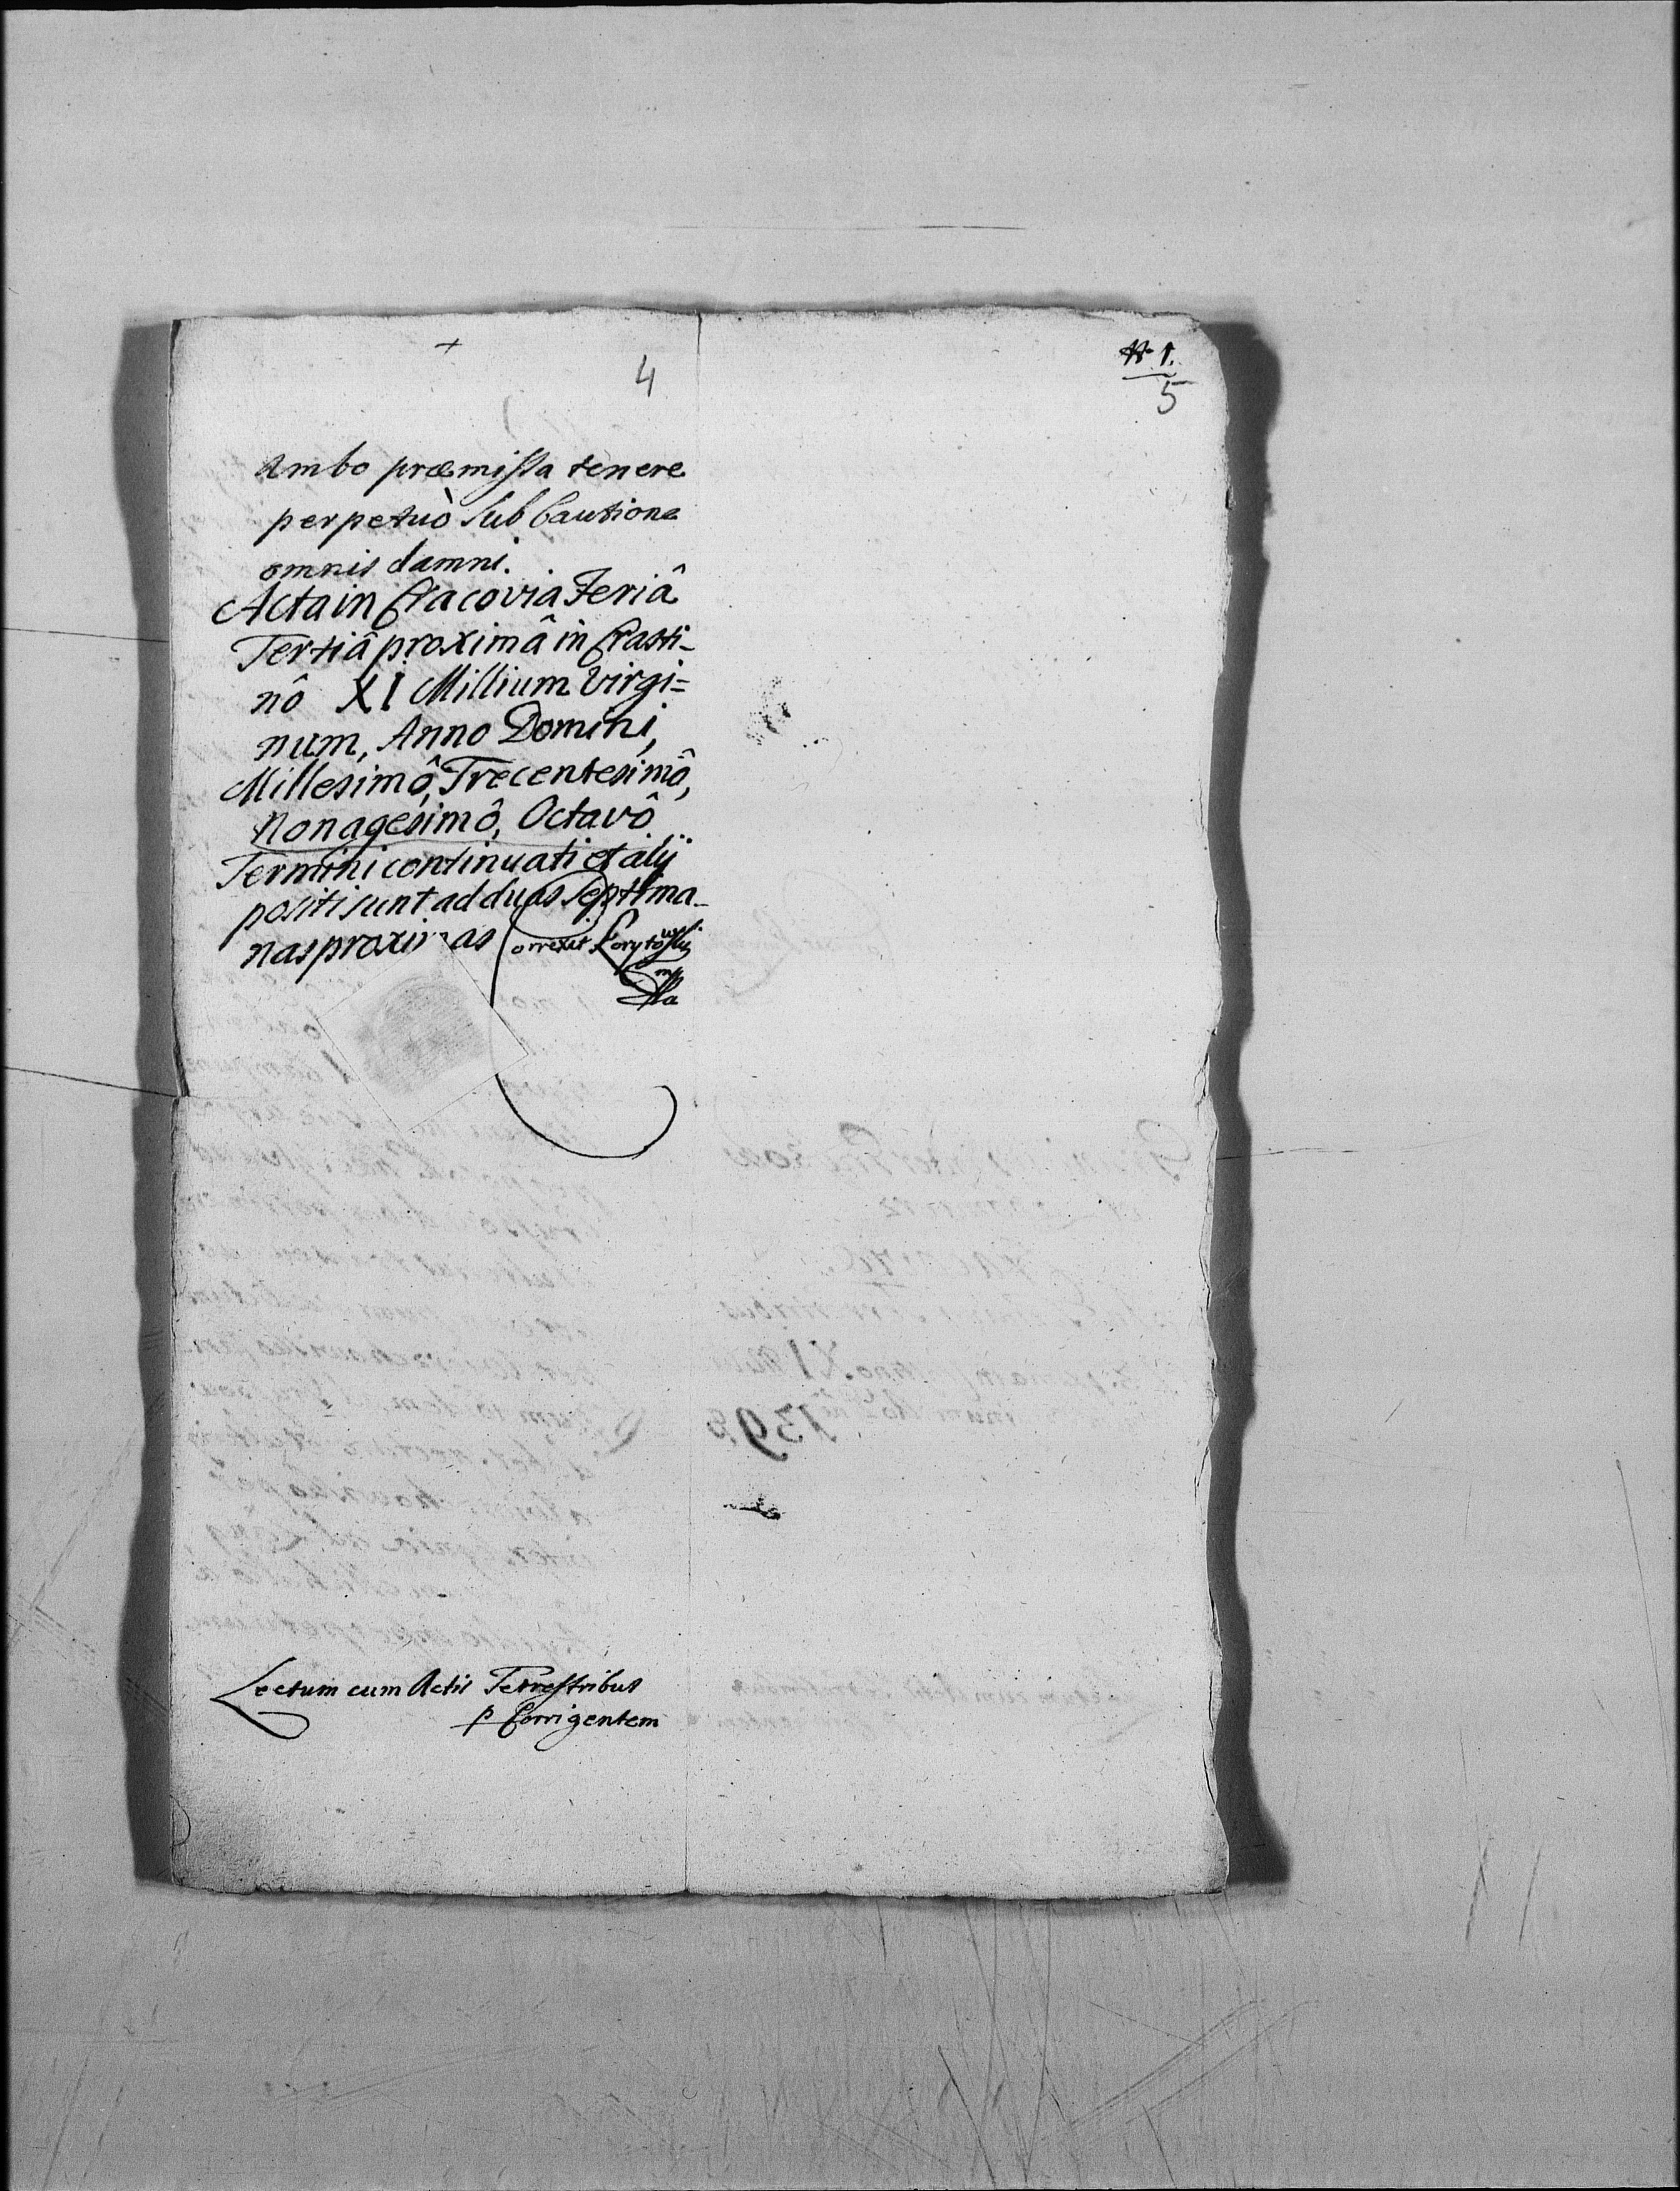 4
N 1.
5
Ambo præmissa tenere
perpetuò sub Cautione
omnis damni.
Acta in Cracovia Feriâ
Tertiâ proximâ in Crasti-
nô XI Millium Virgi=
num, Anno Domini,
Millesimô, Trecentesimô,
Nonagesimô, Octavô
Termini continuati et alÿ
positi sunt ad duas Septima-
nas proximas Correxit
Lectum cum Actis Terrestribus
p Corrigentem